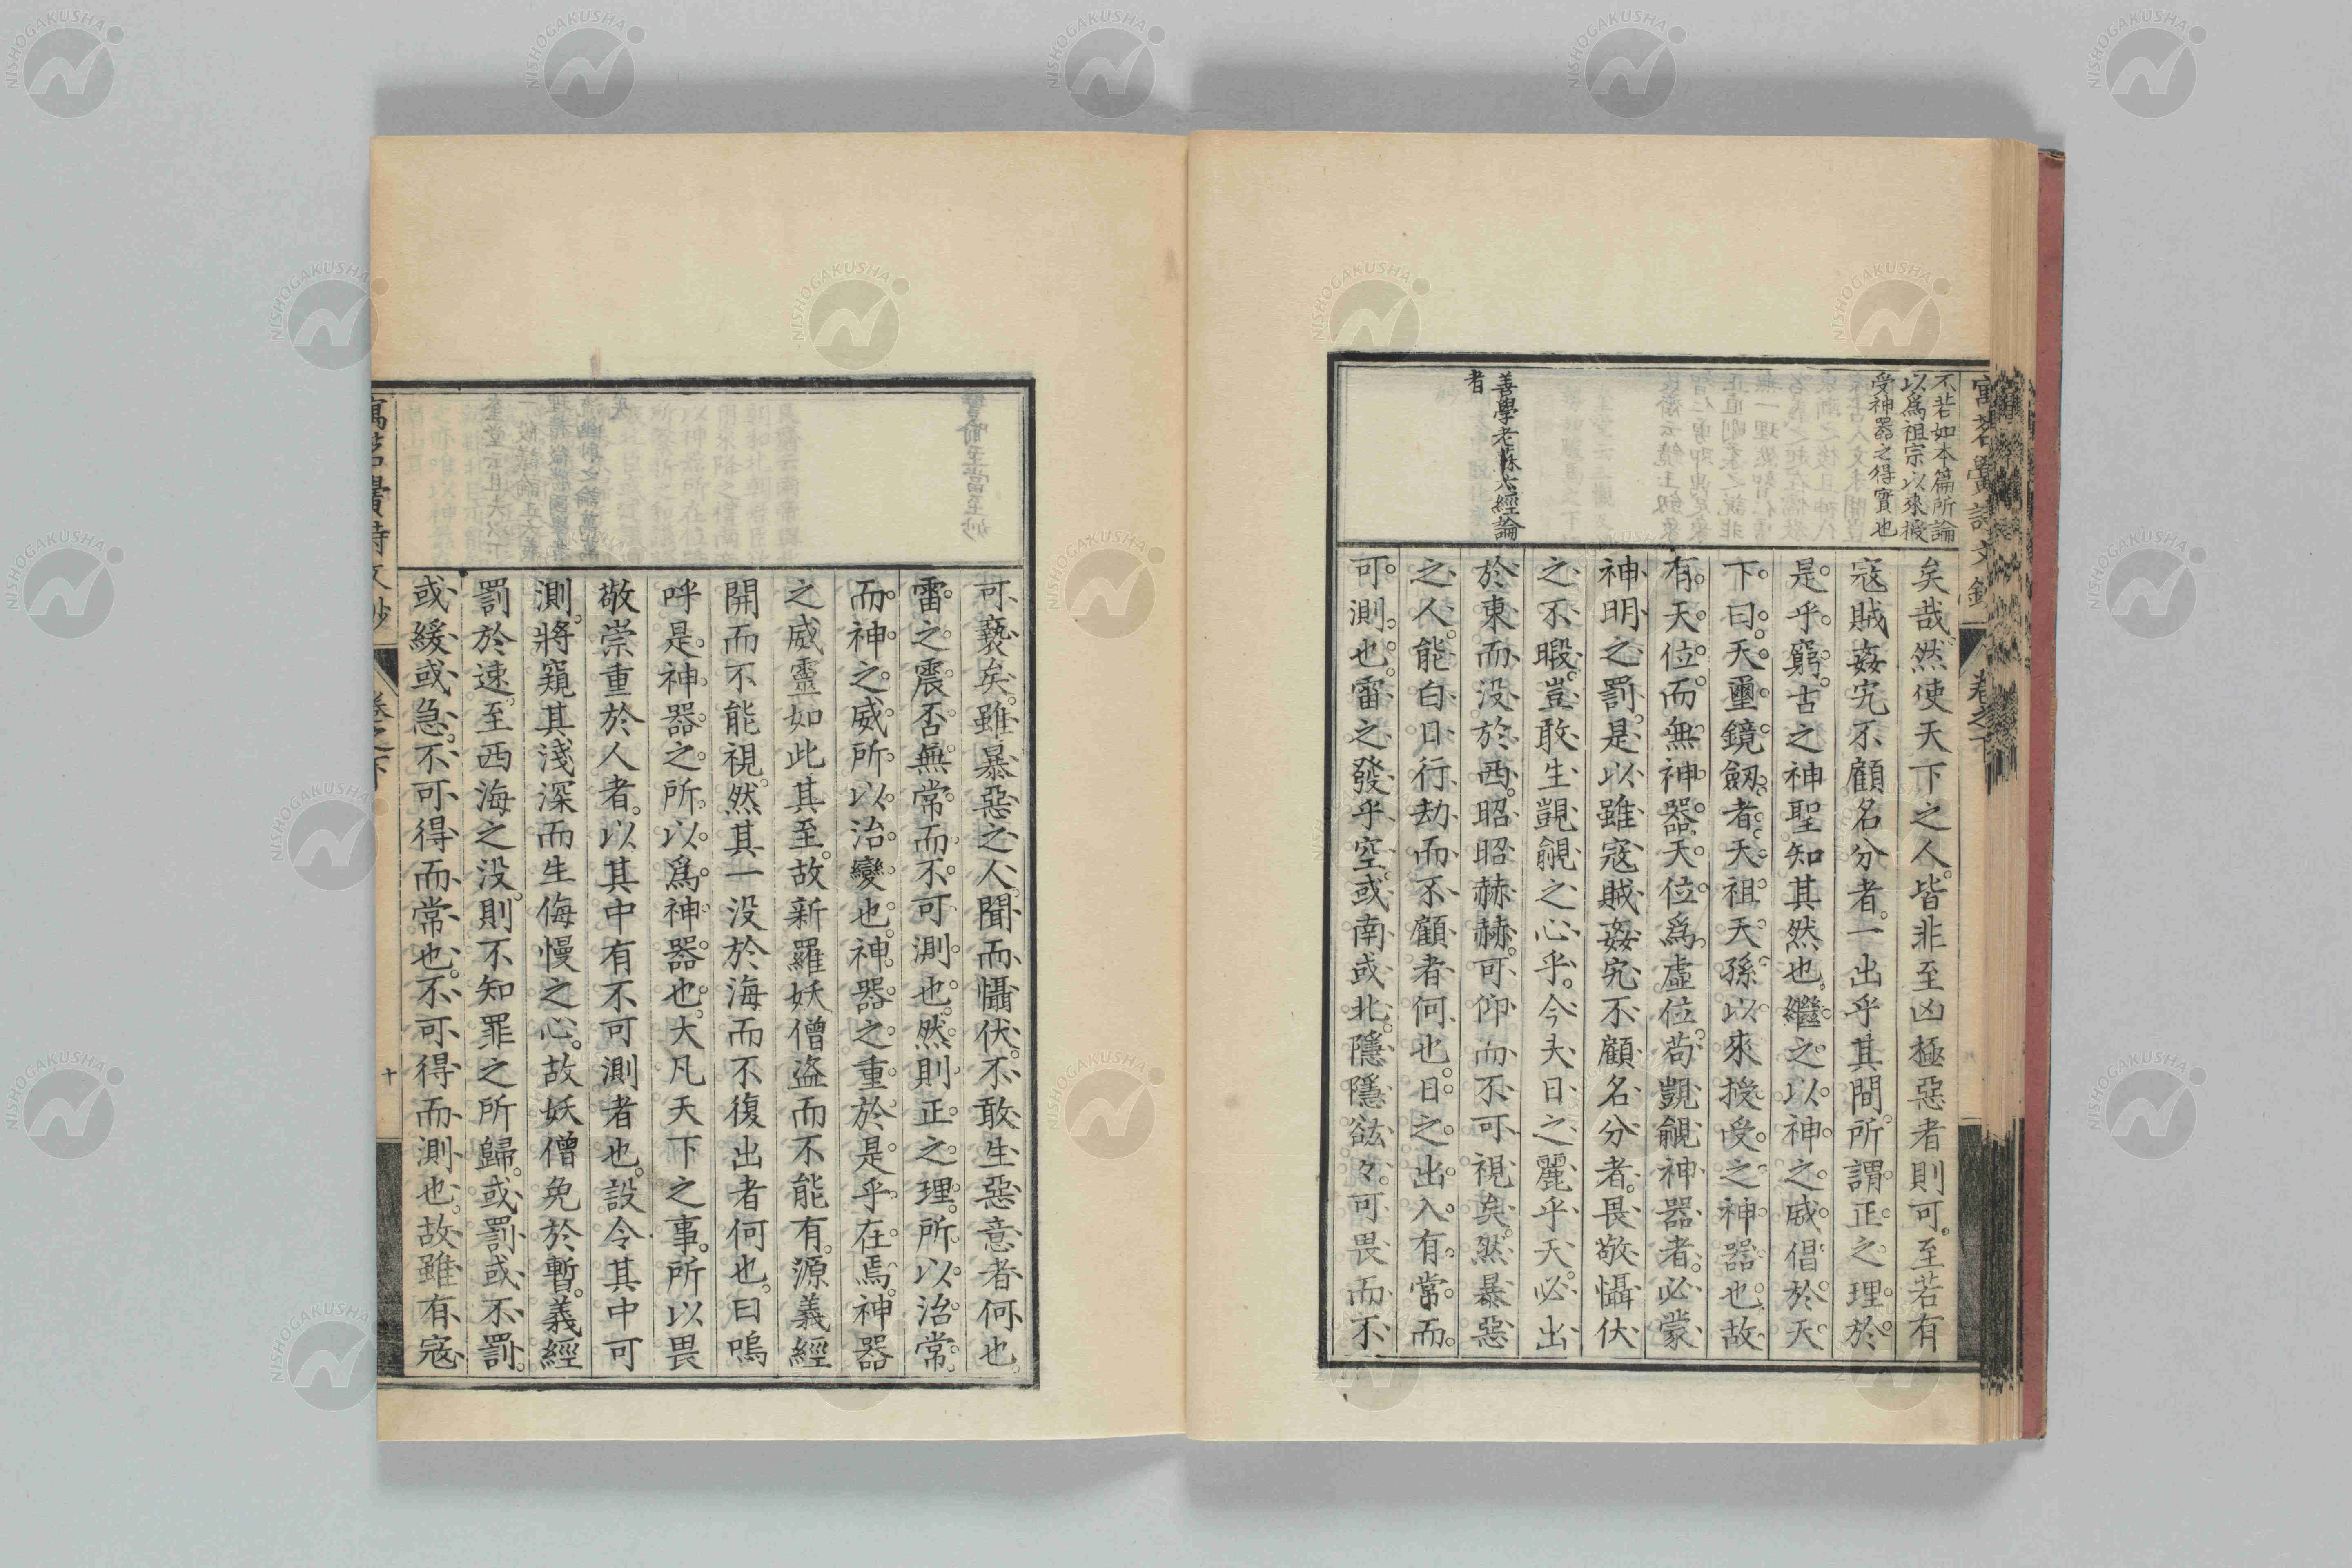 不若如本篇所論
以爲祖宗以來授
受神器之得實也
善學老蘇六經論
者
矣哉然使天下之人皆非至凶極惡者則可至若有
寇賊姦宄不顧名分者一出乎其間所謂正之理於
是乎窮古之神聖知其然也繼之以神之威倡於天
下曰天璽鏡劔者天祖天孫以來授受之神器也故
有天位而無神器天位爲虛位苟覬覦神器者必蒙
神明之罰是以雖寇賊姦宄不顧名分者畏敬懾伏
之不暇豈敢生覬覦之心乎今夫日之麗乎天必出
於東而没於西昭昭赫赫可仰而不可視矣然暴惡
之人能白日行劫而不顧者何也日之出入有常而
可測也雷之發乎空或南或北隱隱谹々可畏而不
可褻矣雖暴惡之人聞而懾伏不敢生惡意者何也
雷之震否無常而不可測也然則正之理所以治常
而神之威所以治變也神器之重於是乎在焉神器
之威靈如此其至故新羅妖僧盜而不能有源義經
開而不能視然其一没於海而不復出者何也曰嗚
呼是神器之所以爲神器也大凡天下之事所以畏
敬崇重於人者以其中有不可測者也設令其中可
測將窺其淺深而生侮慢之心故妖僧免於暫義經
罰於速至西海之没則不知罪之所歸或罰或不罰
或緩或急不可得而常也不可得而測也故雖有寇
卷之下
十
NISHOGAKUSHA